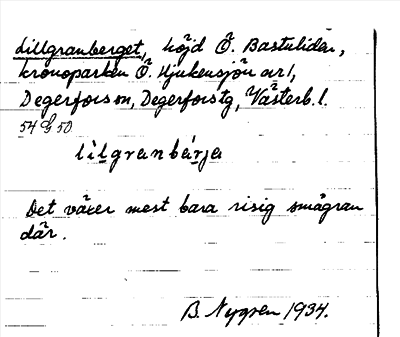 Lillgranberget, höjd Ö. Bastuliden,
kronoparken Ö. Hjukensjön arl,
Degerfors sn, Degerfors tg, Västerb. l.
54 G 50
lìlgranbárja
Det växer mest bara risig smågran
där.
B. Nygren 1934.